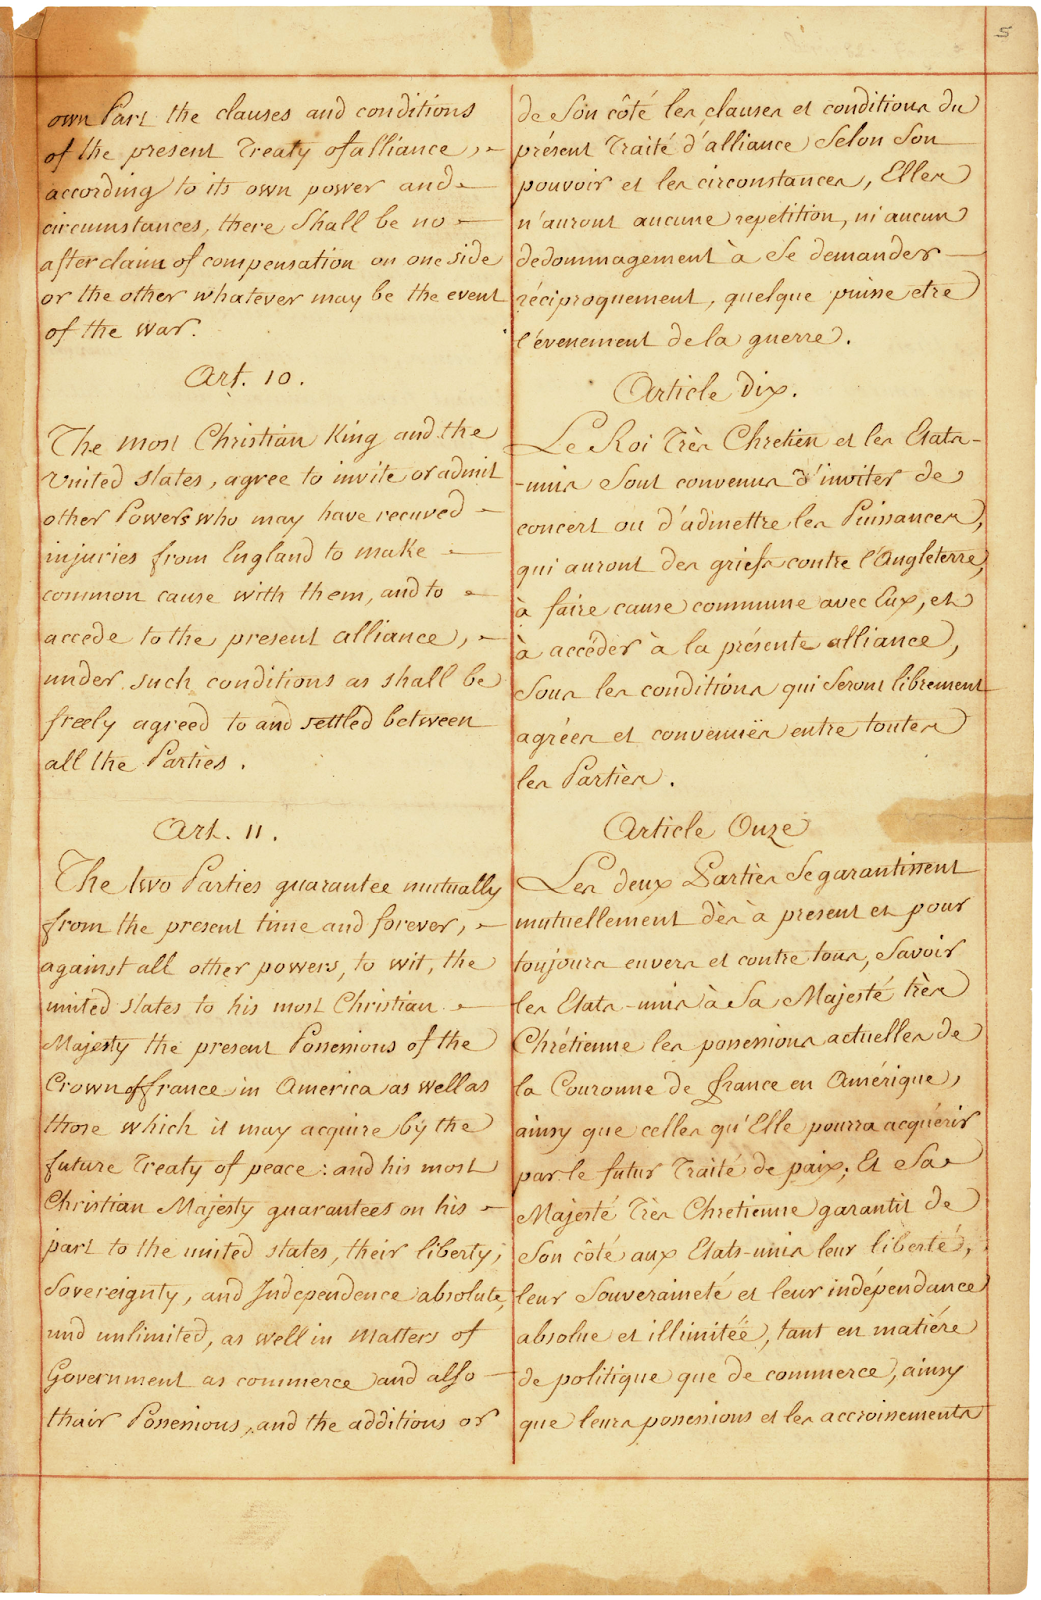 5
own Part the clauses and conditions
of the present Treaty of alliance,
according to its own power and
circumstances, there Shall be no
after claim of compensation on one side
or the other whatever may be the event
of the war.
Art. 10.
The most Christian King and the
United states, agree to invite or admit
other Powers who may have received
injuries from England to make
common cause with them, and to
accede to the present alliance,
under such conditions as shall be
freely agreed to and settled between
all the Parties.
Art. 11.
The two Parties guarantee mutually
from the present time and forever,
against all other powers, to wit, the
united states to his most Christian
Majesty the present Possessions of the
Crown of france in America as well as
those which it may acquire by the
future Treaty of peace: and his most
Christian Majesty guarantees on his
part to the united states, their liberty,
Sovereignty, and Independence absolute,
und unlimited, as well in Matters of
Government as commerce and also
thair Possessions, and the additions or
de Son côté les clauses et conditions du
présent Traité d'alliance Selon Son
pouvoir et les circonstances, Elles
n'auront aucune repetition, ni aucun
dedommagement à Se demander
réciproquement, quelque puisse etre
l'évenement de la guerre.
Article Dix.
Le Roi Très Chretien et les Etats-
-unis Sont convenus d'inviter de
concert ou d'admettre les Puissances,
qui auront des griefs contre l'Angleterre,
à faire cause commune avec Eux, et
à accéder à la présente alliance,
Sous les conditions qui Seront librement
agréés et convenües entre toutes
les Partiès.
Article Onze
Les deux Partiès Se garantissent
mutuellement dès à present et pour
toujours envers et contre tous, Savoir
les Etats-unis à Sa Majesté très
Chrétienne les possessions actuelles de
la Couronne de france en Amérique,
ainsy que celles qu'Elle pourra acquérir
par le futur Traité de paix; Et Sa
Majesté Très Chretienne garantit de
Son côté aux Etats-unis leur liberté,
leur Souveraineté et leur indépendance
absolue et illimitéë, tant en matiére
de politique que de commerce, ainsy
que leurs possessions et les accroissements